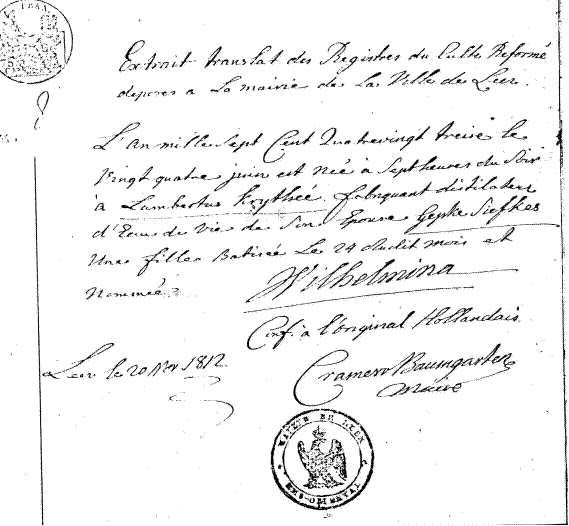 Extrait translat des Registres du Culte Reformé
deposés a La mairie de La Ville de Leer.
L'an mille Sept Cent Quatrevingt treise le
Vingt quatre juin est née à Sept heures du Soir
à Lambertus Koythée, fabriquant distilateur
d'Eau de vie de Son Epouse Gepke Siefkes
Une fille Batisée Le 24 dudit mois et
nommée
Wilhelmina
Conf. à l'original Hollandais
Leer le 20 1812
Cramer Baumgarten
maire
MAIRIE DE LEER
EMS-ORIENTAL